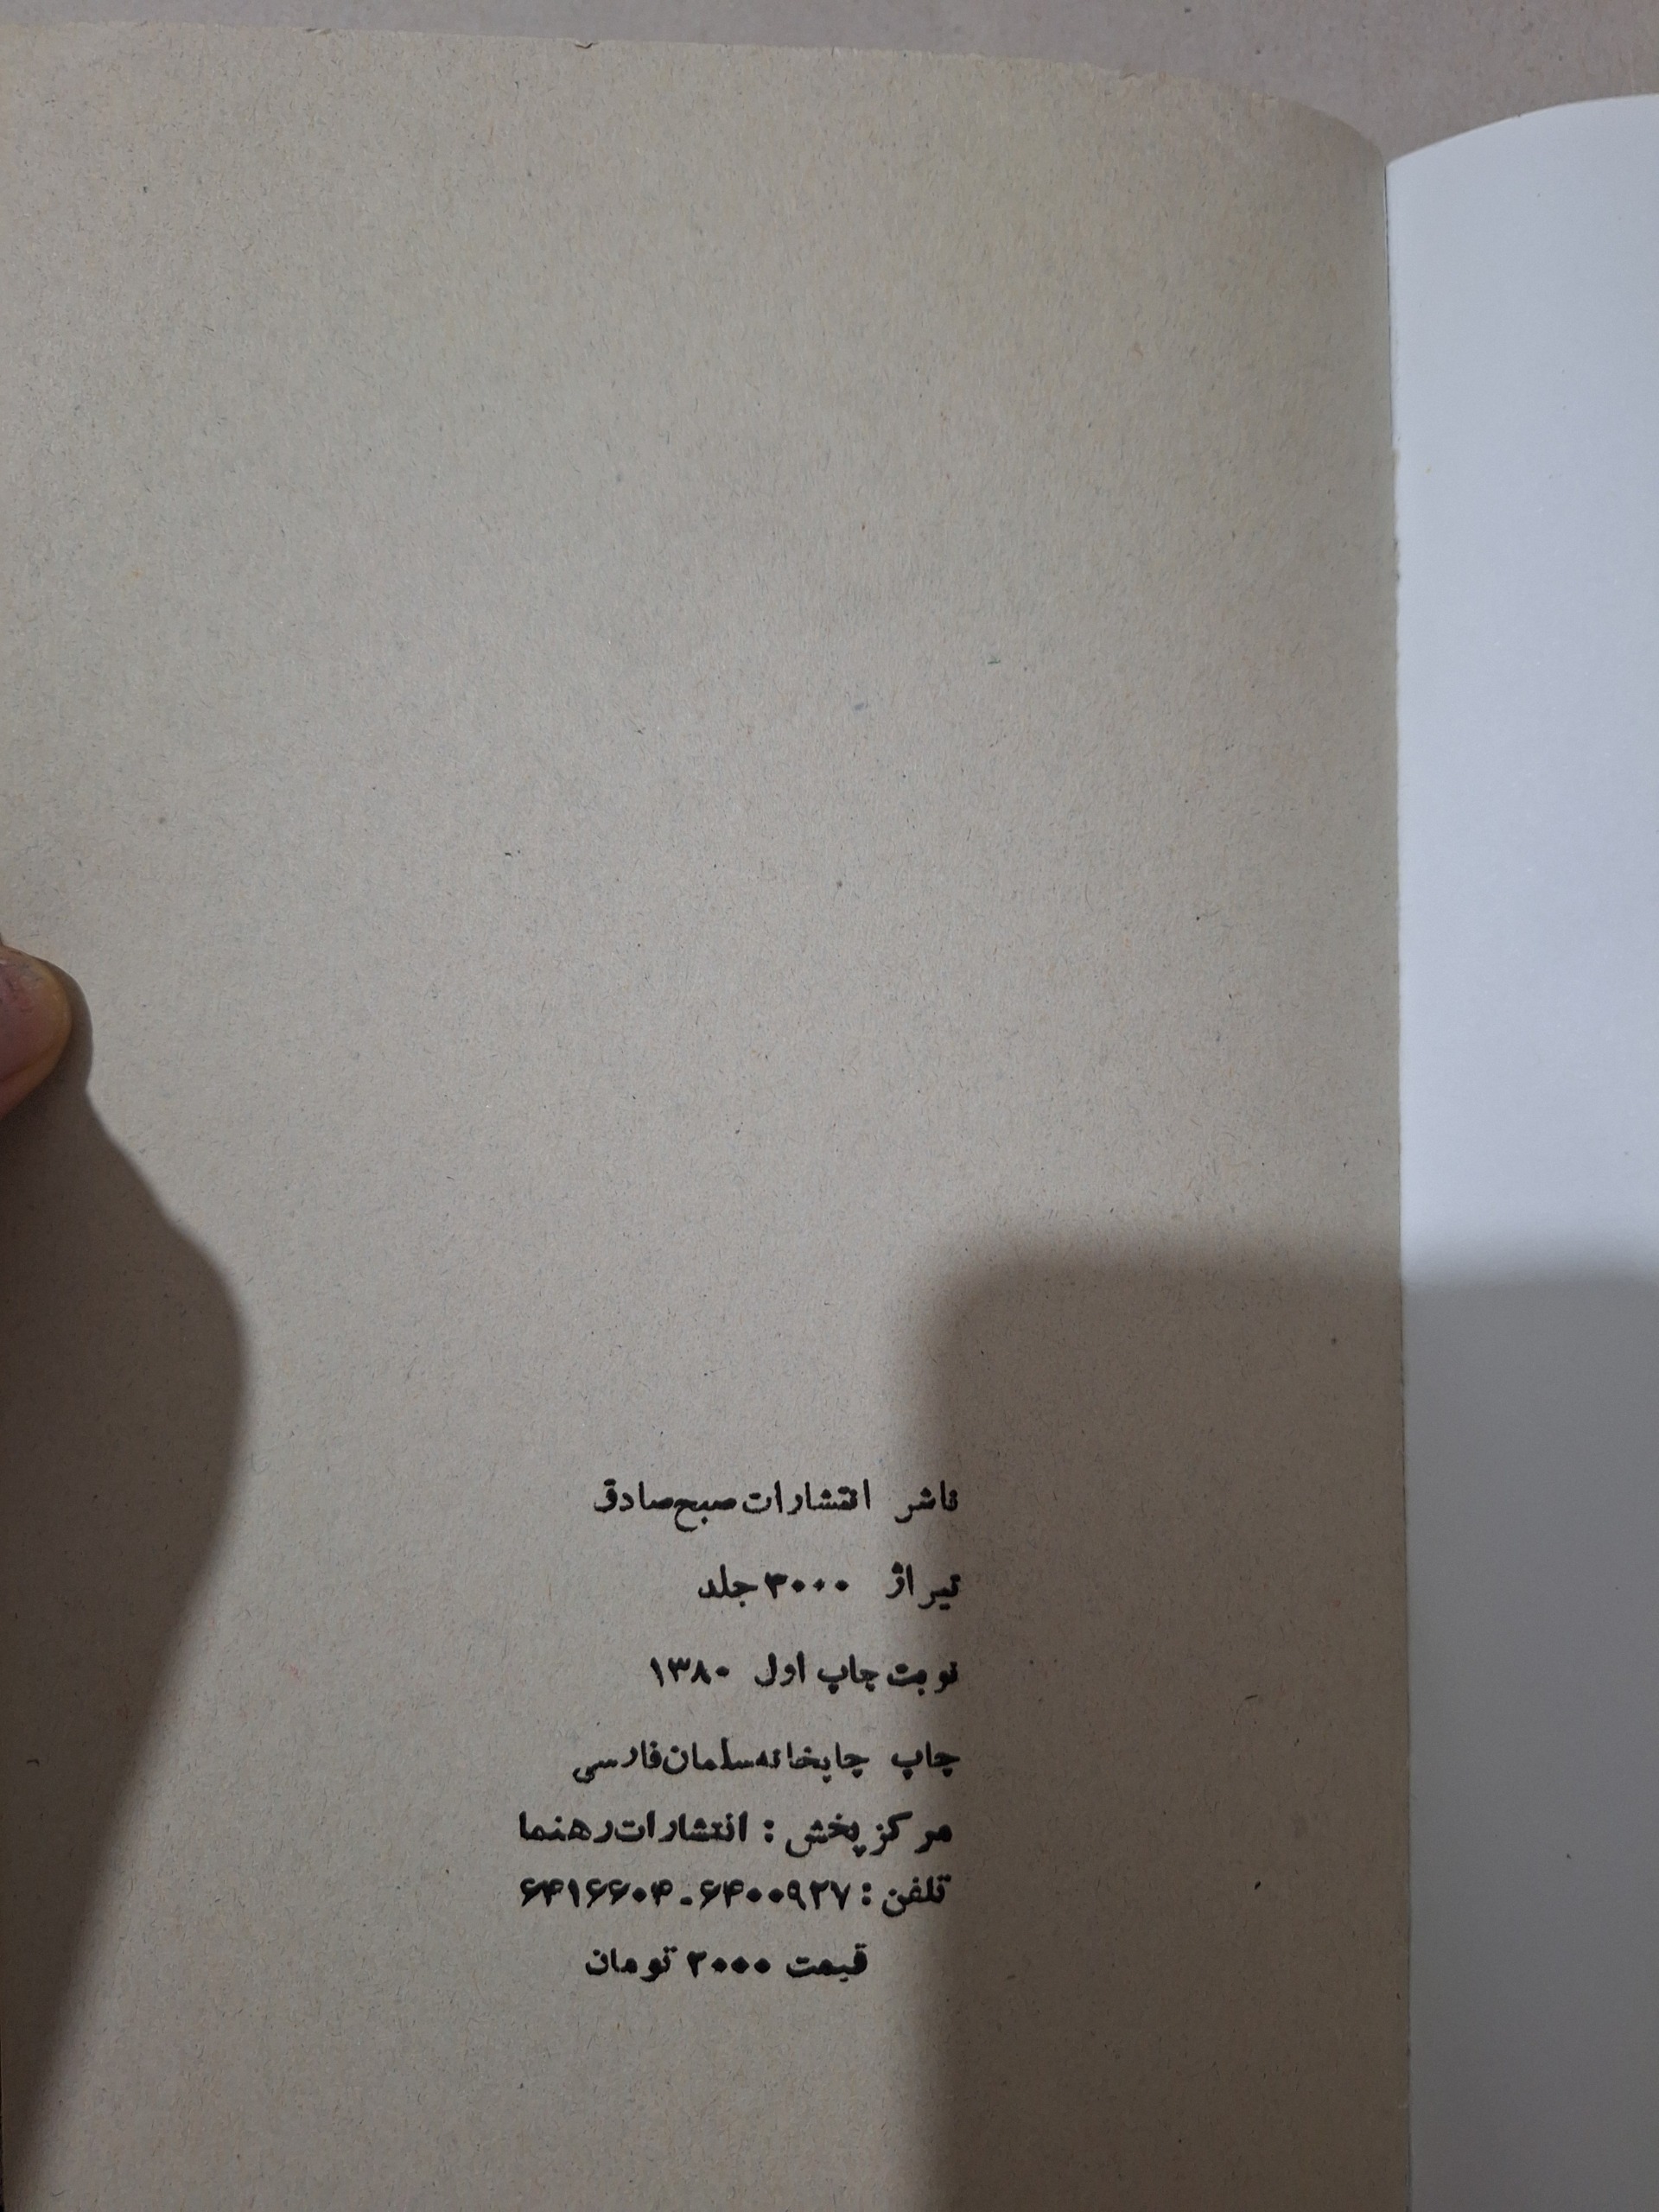 ناشر انتشارات صبح صادق
تیراژ ۳۰۰۰ جلد
نوبت چاپ اول ۱۳۸۰
چاپ چاپخانه سلمان فارسی
مرکز پخش : انتشارات رهنما
تلفن : ۶۴۰۰۹۲۷ - ۶۴۱۶۶۰۴
قیمت ۲۰۰۰ تومان